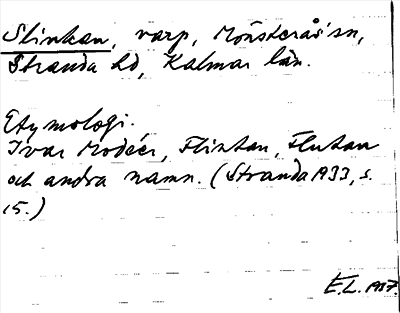 Slinkan, varp, Mönsterås' sn,
Stranda hd, Kalmar län.
Etymologi.
Ivar Modéer, Flintan, Flutan
och andra namn. (Stranda 1933, s.
15.)
E.L. 1937.